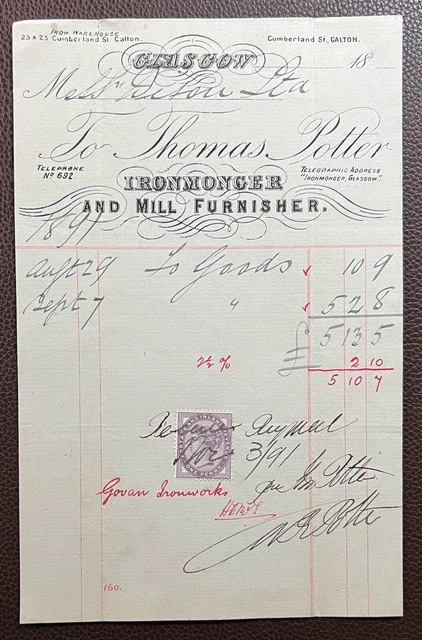 IRON WAREHOUSE
23 & 25 Cumberland St. Calton.
Cumberland St, CALTON.
GLASGOW
18
Messrs Dixon Ltd
To Thomas Potter
TELEPHONE
No 692
TELEGRAPHIC ADDRESS
"IRONMONGER, GLASGOW."
IRONMONGER
AND MILL FURNISHER.
1891
Augt 29 To Goods 10 9
Sept 7 " 5 2 8
£ 5 13 5
2½ % 2 10
5 10 7
Payment
Nov 3/91
Govan Ironworks
ONE PENNY
160.